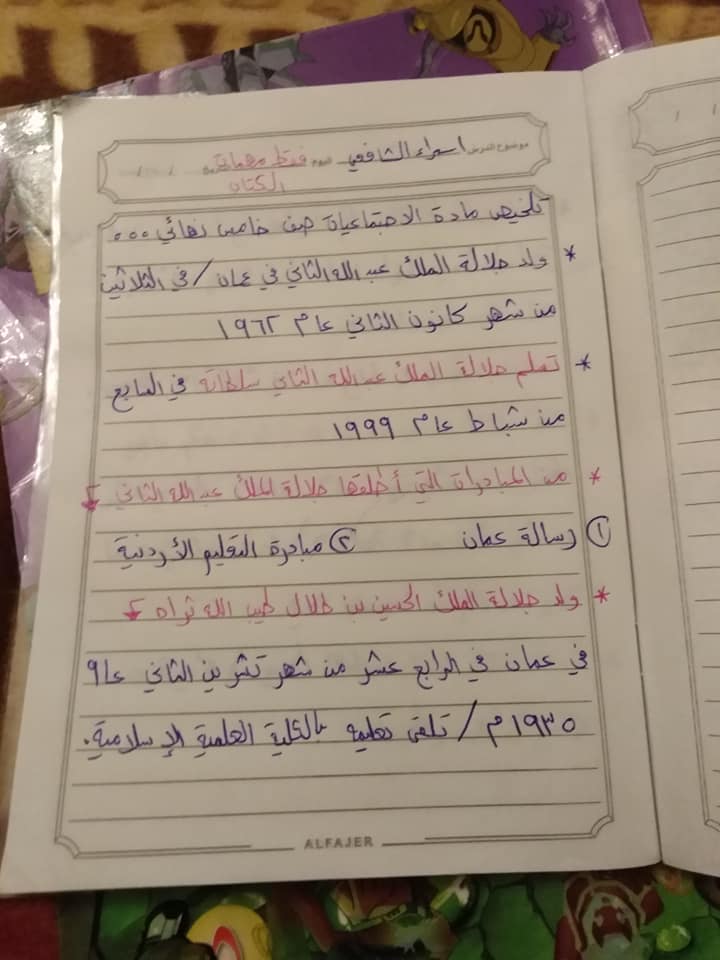 موضوع الدرس اسراء الشافعي اليوم فقط مهمات
الكتاب
تلخيص مادة الاجتماعيات صف خامس نهائي ...
* ولد جلالة الملك عبد الله الثاني في عمان / في الثلاثين
من شهر كانون الثاني عام ١٩٦٢
* تسلم جلالة الملك عبد الله الثاني سلطاته في السابع
من شباط عام ١٩٩٩
* من المبادرات التي أطلقها جلالة الملك عبد الله الثاني
١ رسالة عمان ٢ مبادرة التعليم الأردنية
* ولد جلالة الملك الحسين بن طلال طيب الله ثراه
في عمان في الرابع عشر من شهر تشرين الثاني
١٩٣٥م / تلقى تعليمه بالكلية العلمية الإسلامية.
ALFAJER